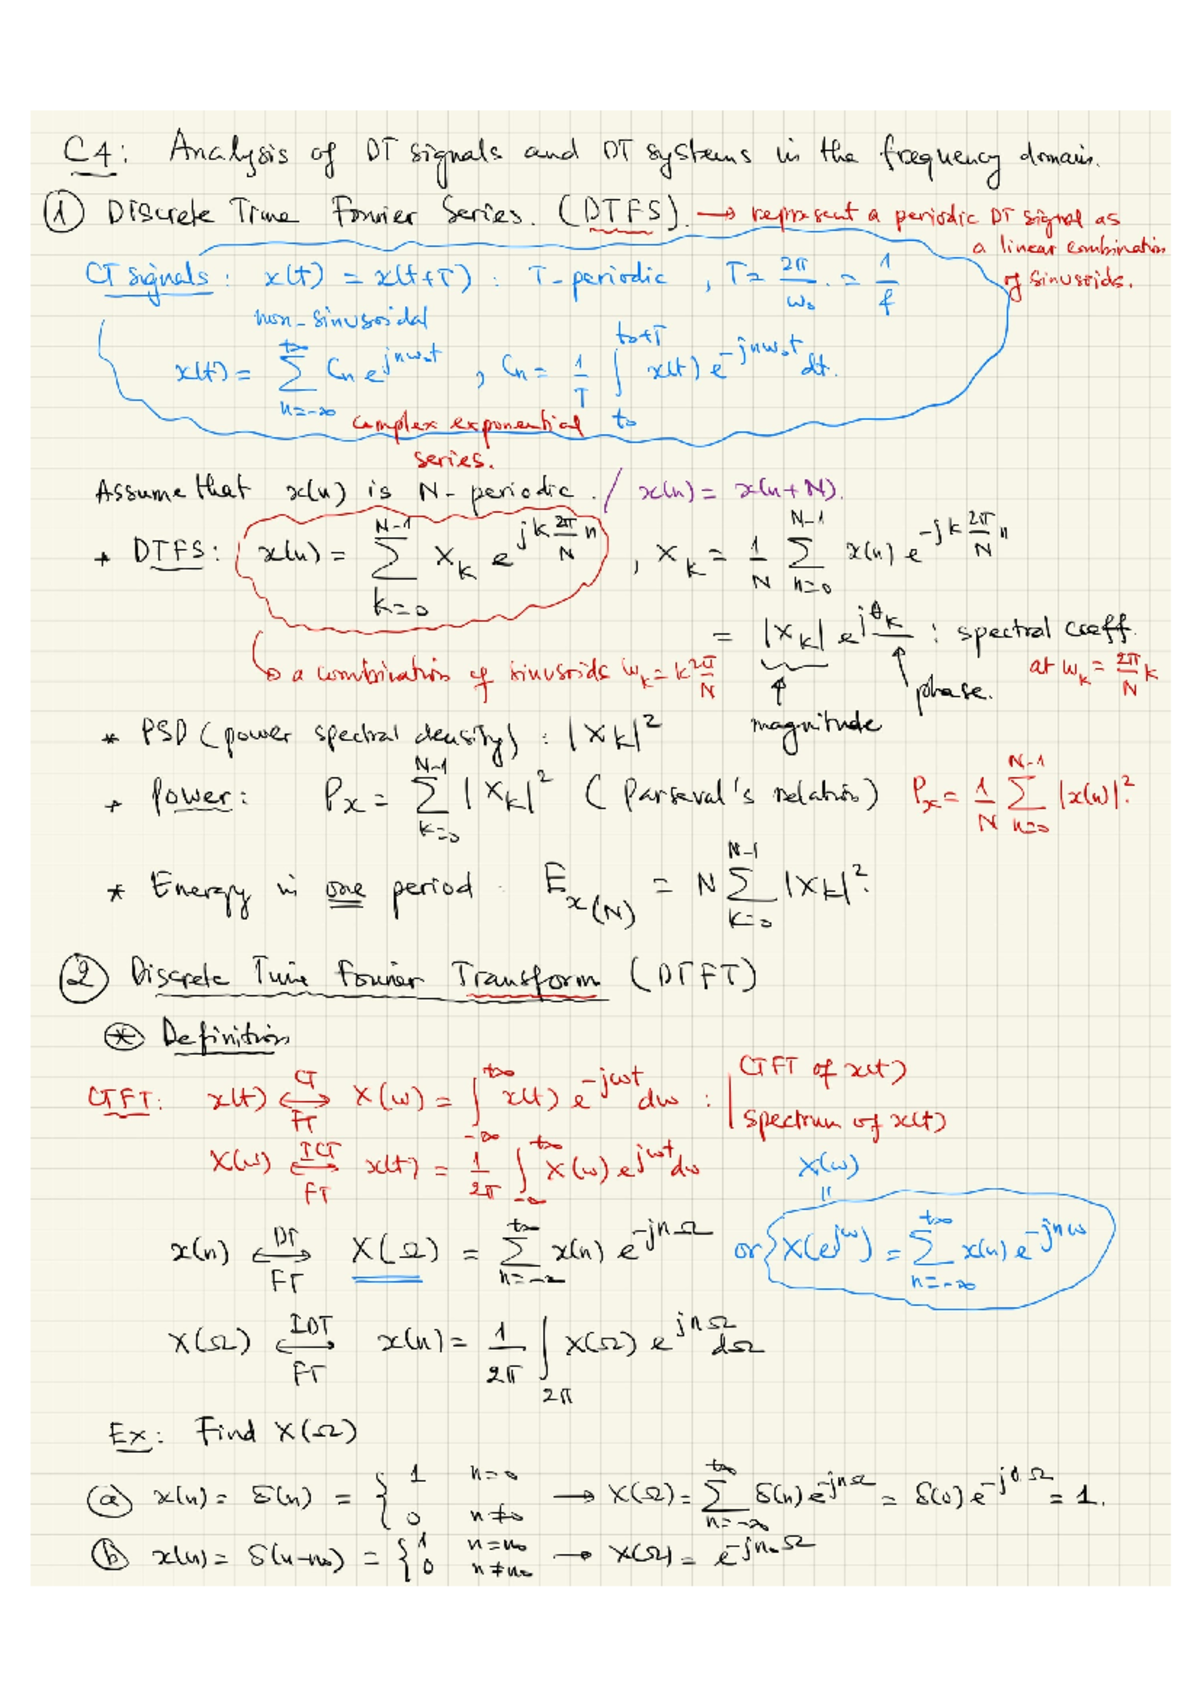 C4: Analysis of DT signals and DT systems in the frequency domain.
① Discrete Time Fourier Series. (DTFS). → represent a periodic DT signal as
a linear combination
of sinusoids.
CT signals: x(t) = x(t+T) : T-periodic, T = 2π/ω₀ = 1/f
non-sinusoidal
x(t) = ∑_{n=-∞}^{+∞} Cn e^{jnω₀t} , Cn = 1/T ∫_{t₀}^{t₀+T} x(t) e^{-jnω₀t} dt.
complex exponential
series.
Assume that x(n) is N-periodic. / x(n) = x(n+N).
* DTFS: x(n) = ∑_{k=0}^{N-1} X_k e^{jk 2π/N n} , X_k = 1/N ∑_{n=0}^{N-1} x(n) e^{-jk 2π/N n}
= |X_k| e^{jθ_k} : spectral coeff.
↳ a combination of sinusoids ω_k = k 2π/N
at ω_k = 2π/N k
magnitude
phase.
* PSD (power spectral density) : |X_k|²
* Power: Px = ∑_{k=0}^{N-1} |X_k|² (Parseval's relation) Px = 1/N ∑_{n=0}^{N-1} |x(n)|².
* Energy in one period. E_{x(N)} = N ∑_{k=0}^{N-1} |X_k|².
② Discrete Time Fourier Transform (DTFT)
⊛ Definition
CTFT: x(t) ⟷ (CT FT) X(ω) = ∫_{-∞}^{+∞} x(t) e^{-jωt} dω : | CTFT of x(t)
spectrum of x(t)
X(ω) ⟷ (ICT FT) x(t) = 1/2π ∫_{-∞}^{+∞} X(ω) e^{jωt} dω
X(ω)
=
x(n) ⟷ (DT FT) X(Ω) = ∑_{n=-∞}^{+∞} x(n) e^{-jnΩ} or X(e^{jω}) = ∑_{n=-∞}^{+∞} x(n) e^{-jnω}
X(Ω) ⟷ (IDT FT) x(n) = 1/2π ∫_{2π} X(Ω) e^{jnΩ} dΩ
Ex: Find X(Ω)
ⓐ x(n) = δ(n) = { 1 n=0 ; 0 n≠0 → X(Ω) = ∑_{n=-∞}^{+∞} δ(n) e^{-jnΩ} = δ(0) e^{-j0Ω} = 1.
ⓑ x(n) = δ(n-n₀) = { 1 n=n₀ ; 0 n≠n₀ → X(Ω) = e^{-jn₀Ω}